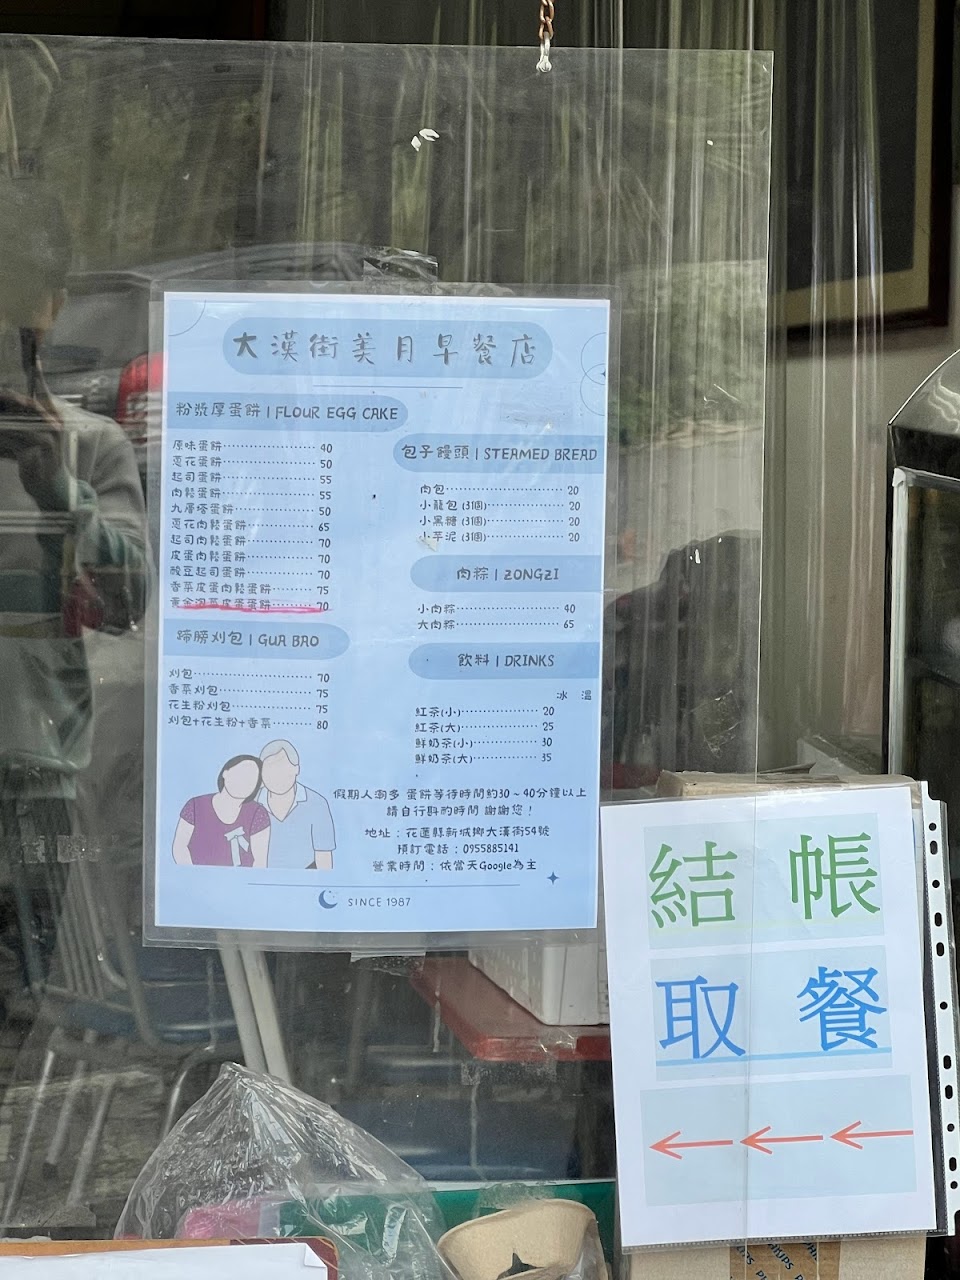 大漢街美月早餐店
粉漿厚蛋餅 | FLOUR EGG CAKE
原味蛋餅 40
蔥花蛋餅 50
起司蛋餅 55
肉鬆蛋餅 55
九層塔蛋餅 50
蔥花肉鬆蛋餅 65
起司肉鬆蛋餅 70
皮蛋肉鬆蛋餅 70
酸豆起司蛋餅 70
香菜皮蛋肉鬆蛋餅 75
黃金泡菜皮蛋蛋餅 70
蹄膀刈包 | GUA BAO
刈包 70
香菜刈包 75
花生粉刈包 75
刈包+花生粉+香菜 80
包子饅頭 | STEAMED BREAD
肉包 20
小籠包 (3個) 20
小黑糖 (3個) 20
小芋泥 (3個) 20
肉粽 | ZONGZI
小肉粽 40
大肉粽 65
飲料 | DRINKS
冰 溫
紅茶(小) 20
紅茶(大) 25
鮮奶茶(小) 30
鮮奶茶(大) 35
假期人潮多 蛋餅等待時間約30~40分鐘以上
請自行斟酌時間 謝謝您!
地址:花蓮縣新城鄉大漢街54號
預訂電話:0955885141
營業時間:依當天Google為主
SINCE 1987
結帳
取餐